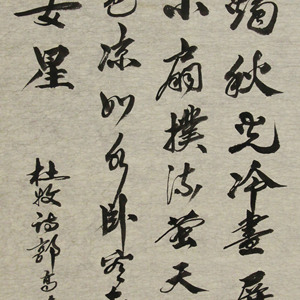 燭秋光冷畫屏
小扇撲流螢天
色凉如水卧看
女星
杜牧诗郭高